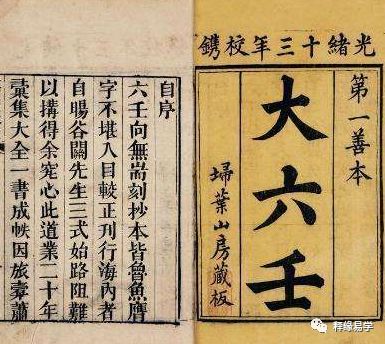 光緒十三年校鐫
第一善本
大六壬
埽葉山房藏板
自序
六壬向無耑刻抄本皆魯魚贗
字不堪入目較正刊行海內者
自暘谷關先生三式始路阻難
以搆得余究心此道業二十年
彚集大全一書成帙因旅橐蕭
释缘易学